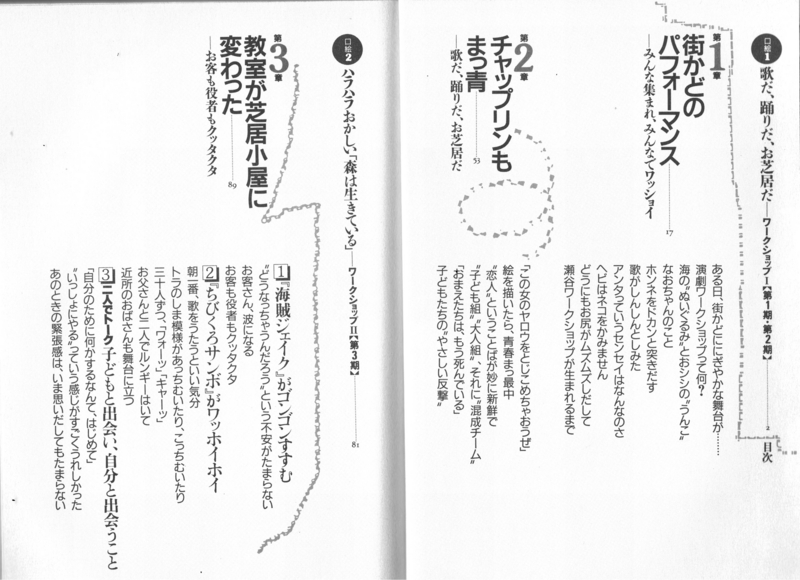 目次
口絵1 歌だ、踊りだ、お芝居だ——ワークショップⅠ【第1期・第2期】——2
第1章
街かどの
パフォーマンス——17
——みんな集まれ、みんなでワッショイ
ある日、街かどににぎやかな舞台が……
演劇ワークショップって何?
海の"ぬいぐるみ"とおシシの"うんこ"
なおちゃんのこと
ホンネをドカンと突きだす
歌がしんしんとしみた
アンタっていうセンセイはなんなのさ
ヘビはネコをかみません
どうにもお尻がムズムズしだして
瀬谷ワークショップが生まれるまで
第2章
チャップリンも
まっ青——53
——歌だ、踊りだ、お芝居だ
「この女のヤロウをとじこめちゃおうぜ」
絵を描いたら、青春まっ最中
"恋人"ということばが妙に新鮮で
"子ども組""大人組"、それに"混成チーム"
「おまえたちは、もう死んでいる」
子どもたちの"やさしい反撃"
口絵2 ハラハラおかしい「森は生きている」——ワークショップⅡ【第3期】——81
第3章
教室が芝居小屋に
変わった——89
——お客も役者もクッタクタ
1『海賊ジェイク』がゴンゴンすすむ
"どうなっちゃうんだろう"という不安がたまらない
お客さん、波になる
お客も役者もクッタクタ
2『ちびくろサンボ』がワッホイホイ
朝一番、歌をうたうといい気分
トラのしま模様があっちむいたり、こっちむいたり
三十人ずつ、「ウォーッ」「キャーッ」
お父さんと二人でルンギーはいて
近所のおばさんも舞台に立つ
3二人でトーク 子どもと出会い、自分と出会うこと
「自分のために何かするなんて、はじめて」
"いっしょにやる"っていう感じがすごくうれしかった
あのときの緊張感は、いま思いだしてもたまらない